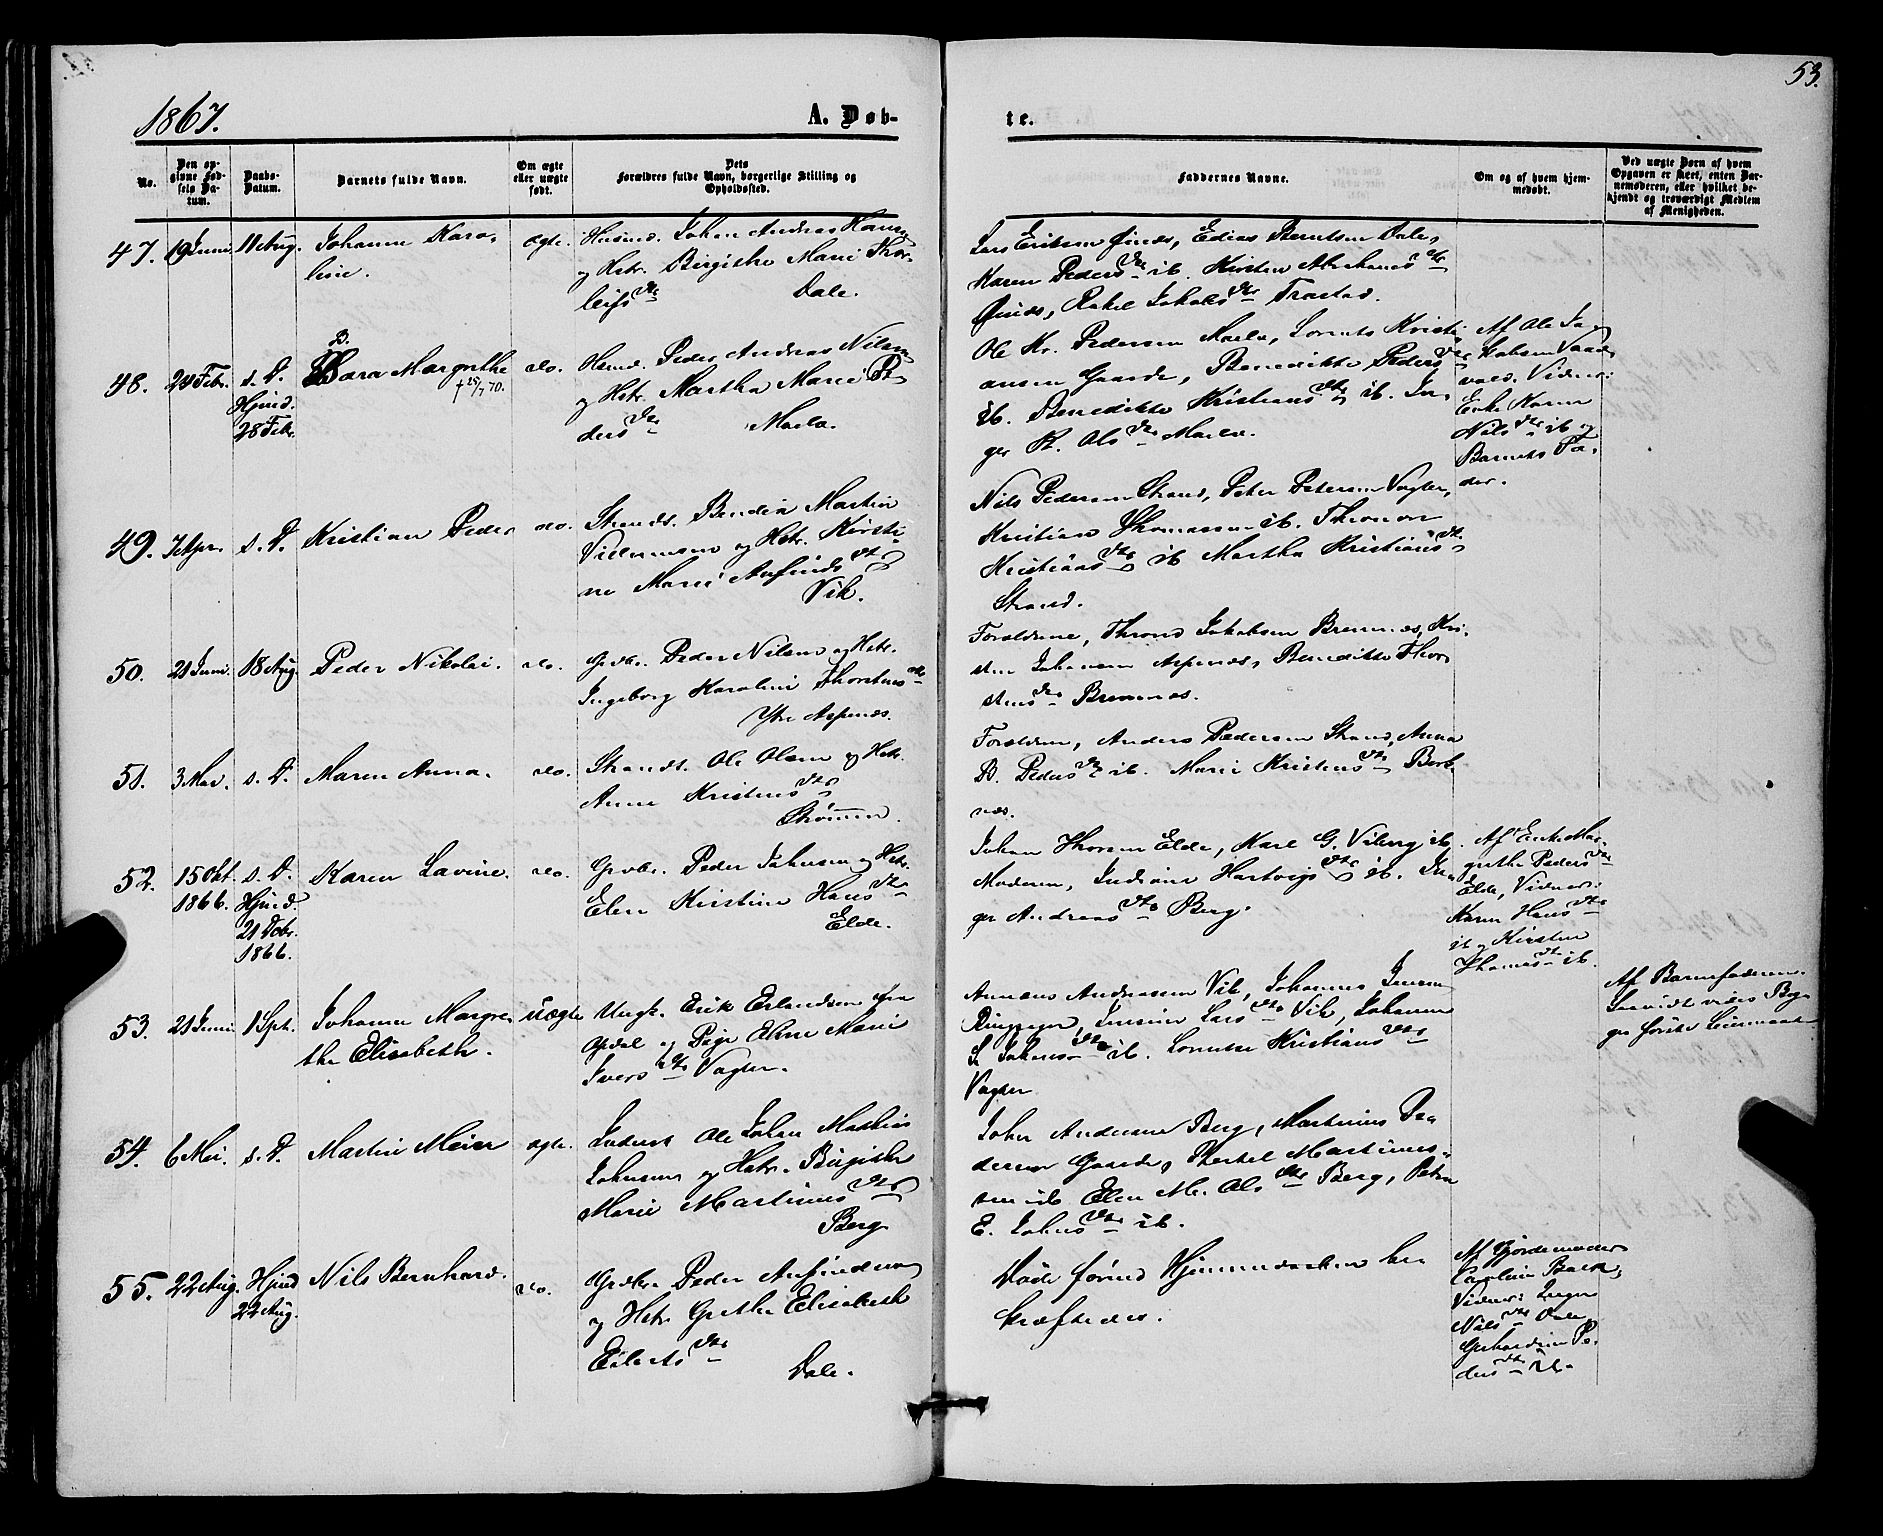 53.
1867.
A. Døb-
te.
No.
Den op-
givne Fød-
sels Da-
tum.
Daabs-
Datum.
Barnets fulde Navn.
Om ægte
eller uægte
født.
Dets
Forældres fulde Navn, borgerlige Stilling og
Opholdssted.
Faddernes Navne.
Om og af hvem hjem-
medøbt.
Ved uægte Børn af hvem
Opgaven er skeet, enten Bar-
nemoderen, eller hvilket be-
kjendt og troværdigt Medlem
af Menigheden.
47. 19 Juni 11 Aug. Johanna Karo-
line.
ægte.
Husmd. Johan Andreas
og Hstr. Birgithe Marie Thor-
leifsdtr
Dale.
Lars Eriksen Edias Berntsen Dale,
Karen Pedersdtr ib. Kirsten Abrahamsdtr
Rakel Jakobsdtr Trastad.
48. 24 Febr. s. D.
Hjmd.
28 Febr.
B.
Sara Margrethe
† 25/7 70.
do.
Peder Andreas Nilsen
og Hstr. Martha Marie P
dersdtr Maela.
Ole Kr. Pedersen Maela, Lorents Kristi-
ansen Gaarde, Benedikte Pedersdtr
ib. Benedikte Kristiansdtr ib. In-
ger P. Olsdtr Maela.
Af Ole Ja-
kobsen
Vidner:
Enke Karen
Nilsdtr ib og
Barnets Fa-
der.
49. 7 Apr. s. D. Kristian Peder do.
Strands. Martin
og Hstr. Kirsti-
ne Marie Anfindsdtr
Vik.
Nils Pedersen Strand, Peter Petersen Vagten,
Kristian Thomassen ib.
Kristiansdtr ib Martha Kristiansdtr
Strand.
50. 21 Juni. 18 Aug. Peder Nikolai. do.
Grbr. Peder Nilsen og Hstr.
Ingeborg Karoline Thorstensdtr
Ytre Aspenes.
Forældrene, Thrond Jakobsen Bremnes, Kri-
sten Johansen Aspenes, Benedikte Thor-
stensdtr Bremnes.
51. 3 Mar. s. D. Maren Anna. do.
Strands. Ole Olsen og Hstr.
Anne Kristensdtr
Strømmen.
Forældrene, Anders Pedersen Strand, Anna
B. Pedersdtr ib. Marie Kristensdtr Berb-
nes.
52. 15 Okt.
1866.
s. D.
Hjmd.
21 Dcbr.
1866.
Karen Lavine. do.
Grbr. Peder Johnsen og Hstr.
Elen Kristine Hansdtr
Elde.
Johan Thoresen Elde, Karl G. Viberg ib.
Moderen, Hartvigsdtr ib. In-
ger Andreasdtr Berg.
Af Enke Mar-
grethe Pedersdtr
Elde, Vidner:
Karen Hansdtr
ib og Kirsten
Thomasdtr ib.
53. 21 Juni 1 Sept. Johanna Margre-
the Elisabeth.
uægte
Ungk. Erik Erlandsen fra
Opdal og Pige Elen Marie
Iversdtr Vagten.
Andreassen Vik, Johannes Jensen
Larsdtr Vik, Johanna
ib. Kristiansdtr
Vagten
Af Barnefaderen.
54. 6 Mai. s. D. Martin Meier ægte.
Inderst Ole Johan Mathias
Johnsen og Hstr. Birgithe
Marie Martinusdtr
Berg
John Andersen Berg, Martinus Pe-
dersen Gaarde, Martinus-
sen ib Elen M. Olsdtr Berg, Petra
E. Johnsdtr ib.
55. 22 Aug. Hjmd
22 Aug.
Nils Bernhard. do.
Grbr. Peder Anfindsen
og Hstr. Grethe Elisabeth
Eilertsdtr
Dale.
Døde førend Hjemmedaaben be-
kræftedes.
Af Gjordemoder
Vidner: Inger
Nilsdtr Dale,
Gerhardine Pe-
dersdtr ib.